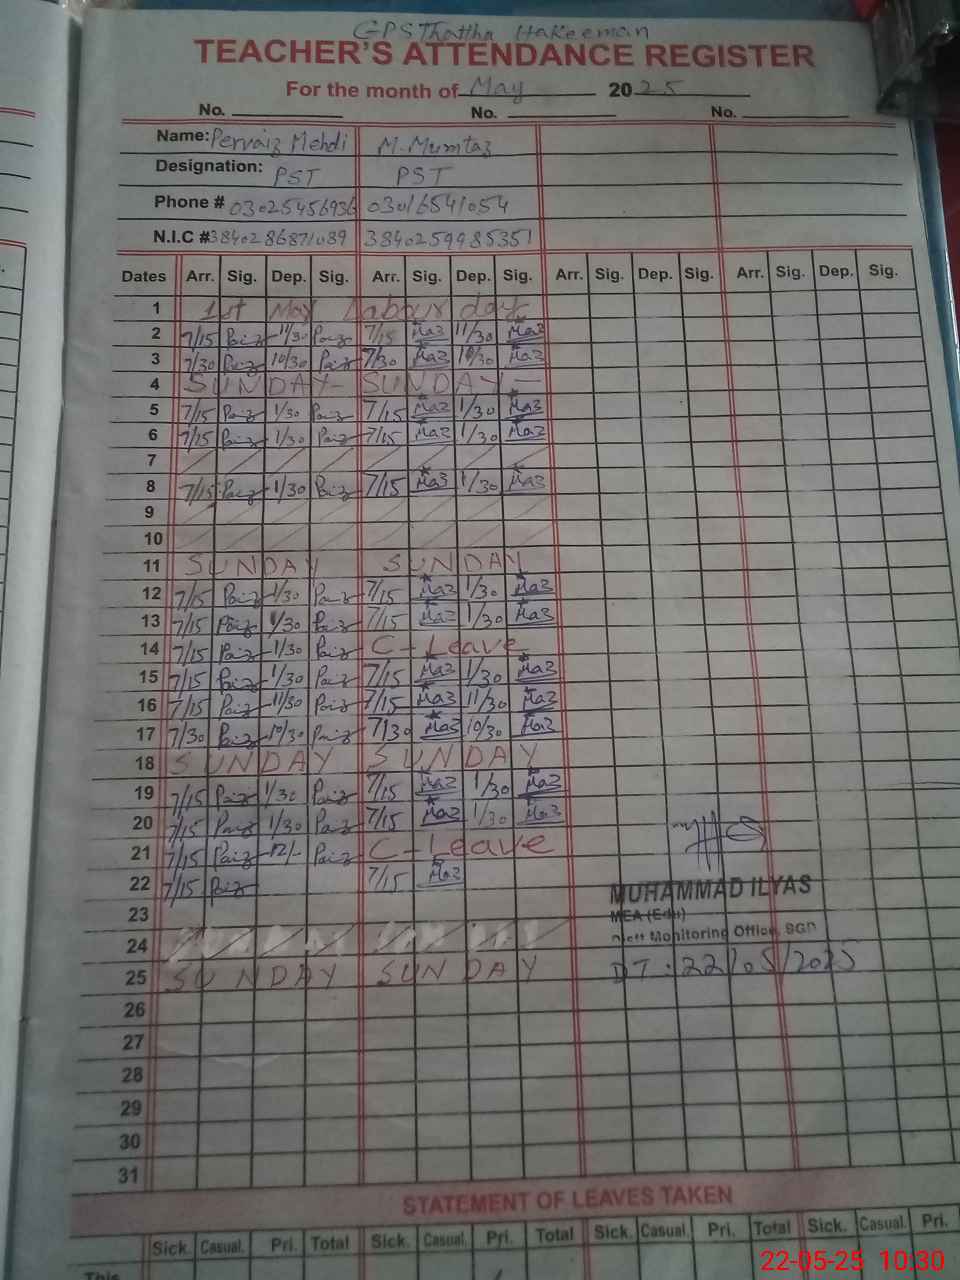 GPS Thattha Hakeeman
TEACHER'S ATTENDANCE REGISTER
For the month of May 2025
No. No. No.
Name: Pervaiz Mehdi M. Mumtaz
Designation: PST PST
Phone # 03025456936 03016541054
N.I.C # 3840286871089 3840259985351
Dates Arr. Sig. Dep. Sig. Arr. Sig. Dep. Sig. Arr. Sig. Dep. Sig. Arr. Sig. Dep. Sig.
1 1st May Labour day
2 7/15 Paiz 11/30 Paiz 7/15 Maz 11/30 Maz
3 7/30 Paiz 10/30 Paiz 7/30 Maz 10/30 Maz
4 SUNDAY- SUNDAY-
5 7/15 Paiz 1/30 Paiz 7/15 Maz 1/30 Maz
6 7/15 Paiz 1/30 Paiz 7/15 Maz 1/30 Maz
7
8 7/15 Paiz 1/30 Paiz 7/15 Maz 1/30 Maz
9
10
11 SUNDAY SUNDAY
12 7/15 Paiz 1/30 Paiz 7/15 Maz 1/30 Maz
13 7/15 Paiz 1/30 Paiz 7/15 Maz 1/30 Maz
14 7/15 Paiz 1/30 Paiz C-Leave
15 7/15 Paiz 1/30 Paiz 7/15 Maz 1/30 Maz
16 7/15 Paiz 11/30 Paiz 7/15 Maz 11/30 Maz
17 7/30 Paiz 10/30 Paiz 7/30 Maz 10/30 Maz
18 SUNDAY SUNDAY
19 7/15 Paiz 1/30 Paiz 7/15 Maz 1/30 Maz
20 7/15 Paiz 1/30 Paiz 7/15 Maz 1/30 Maz
21 7/15 Paiz 12/- Paiz C-Leave
22 7/15 Paiz 7/15 Maz
MUHAMMAD ILYAS
23
MEA (Edu)
24
Monitoring Office, SGD
25 SUNDAY SUNDAY
DT: 22/05/2025
26
27
28
29
30
31
STATEMENT OF LEAVES TAKEN
Sick. Casual. Pri. Total Sick. Casual. Pri. Total Sick. Casual. Pri. Total Sick. Casual. Pri.
This
22-05-25 10:30